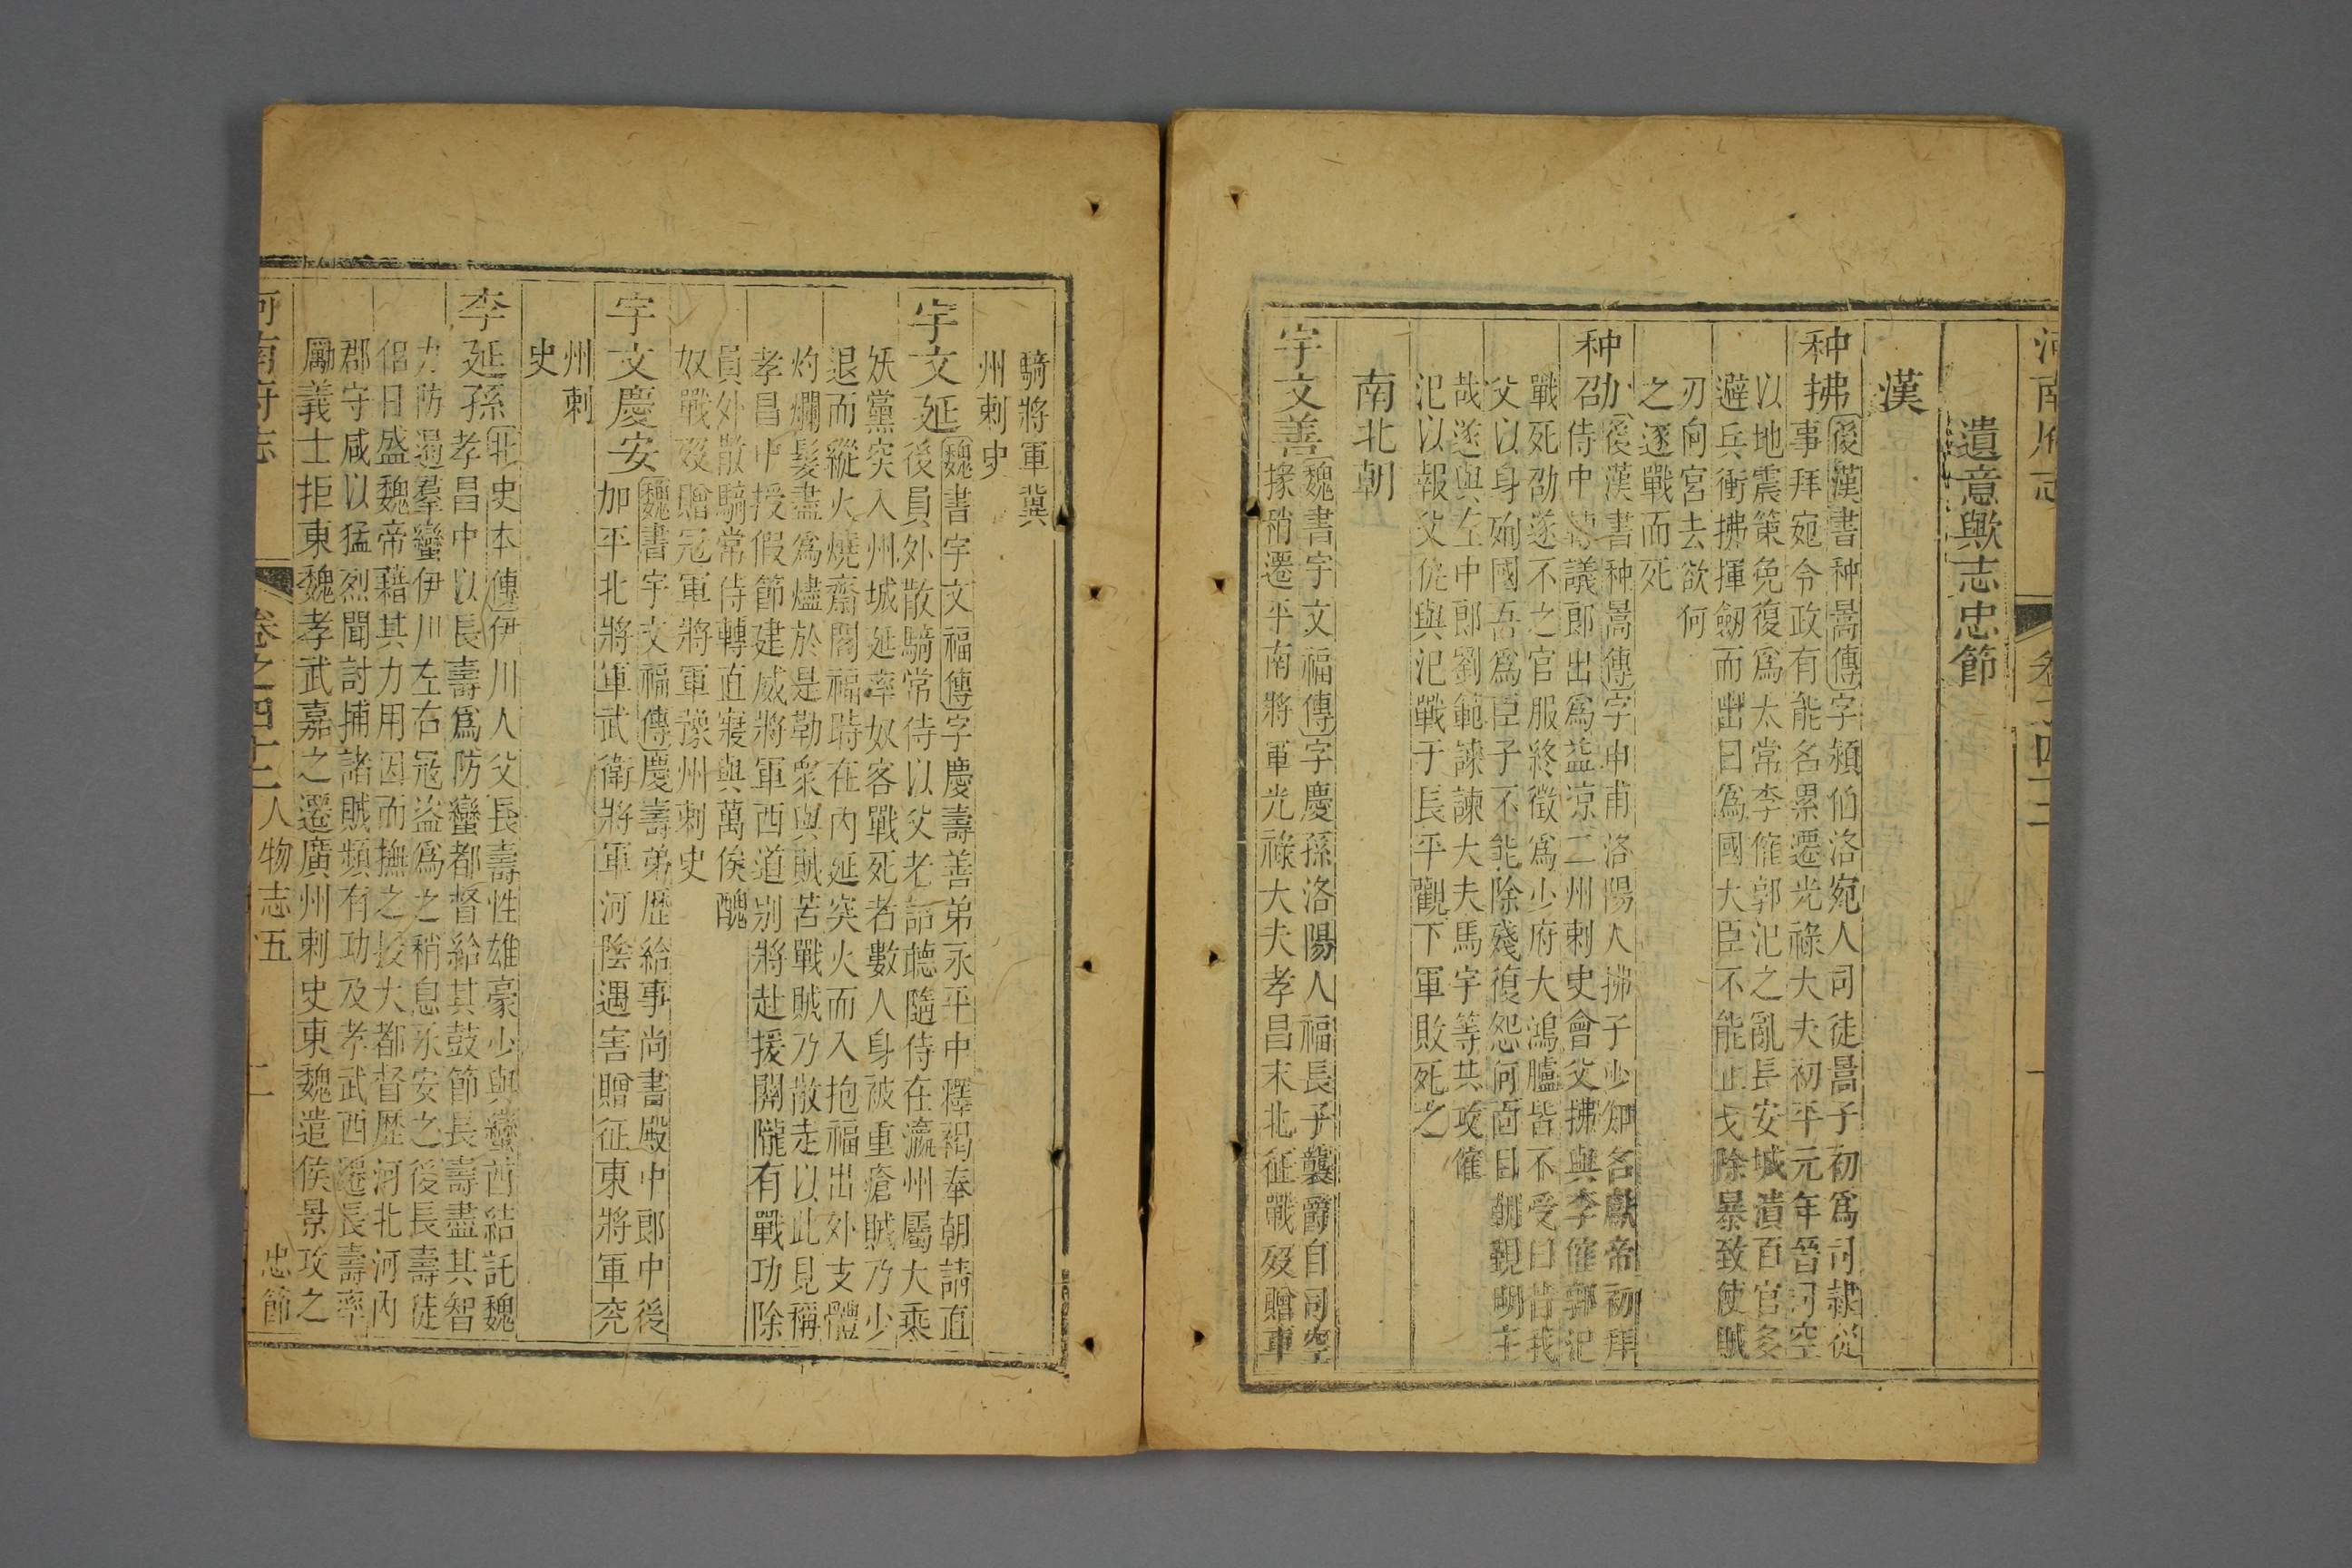 河南府志
卷之四十二
一
遺意歟志忠節
漢
种拂
後漢書种暠傳字潁伯洛宛人司徒暠子初爲司隷從
事拜宛令政有能名累遷光祿大夫初平元年晉司空
以地震策免復爲太常李傕郭汜之亂長安城潰百官多
避兵衝拂揮劒而出曰爲國大臣不能止戈除暴致使賊
刃向宮去欲何
之遂戰而死
种劭
後漢書种暠傳字申甫洛陽人拂子少知名獻帝初拜
侍中 議郎出爲益凉二州刺史會父拂與李傕郭汜
戰死劭遂不之官服終徵爲少府大鴻臚皆不受曰昔我
父以身殉國吾爲臣子不能除殘復怨何面目朝覲明主
哉遂與左中郎劉範諫諫大夫馬宇等共攻傕
汜以報父仇與汜戰于長平觀下軍敗死之
南北朝
宇文善
魏書宇文福傳字慶孫洛陽人福長子襲爵自司空
掾稍遷平南將軍光祿大夫孝昌末北征戰歿贈車
騎將軍冀
州刺史
宇文延
魏書宇文福傳字慶壽善弟永平中釋褐奉朝請直
後員外散騎常侍以父老詔聽隨侍在瀛州屬大乘
妖黨突入州城延率奴客戰死者數人身被重瘡賊乃少
退而縱火燒齋閣福時在內延突火而入抱福出外支體
灼爛髮盡爲燼於是勒衆與賊苦戰賊乃散走以此見稱
孝昌中授假節建威將軍西道別將赴援關隴有戰功除
員外散騎常侍轉直寢與萬俟醜
奴戰歿贈冠軍將軍豫州刺史
宇文慶安
魏書宇文福傳慶壽弟歷給事尚書殿中郎中後
加平北將軍武衛將軍河陰遇害贈征東將軍兖
州刺
史
李延孫
北史本傳伊川人父長壽性雄豪少與蠻酋結託魏
孝昌中以長壽爲防蠻都督給其鼓節長壽盡其智
力防遏羣蠻伊川左右冦盗爲之稍息永安之後長壽徒
侶日盛魏帝藉其力用因而撫之授大都督歷河北河內
郡守咸以猛烈聞討捕諸賊頻有功及孝武西遷長壽率
厲義士拒東魏孝武嘉之遷廣州刺史東魏遣侯景攻之
河南府志
卷之四十二
人物志五
忠節
二